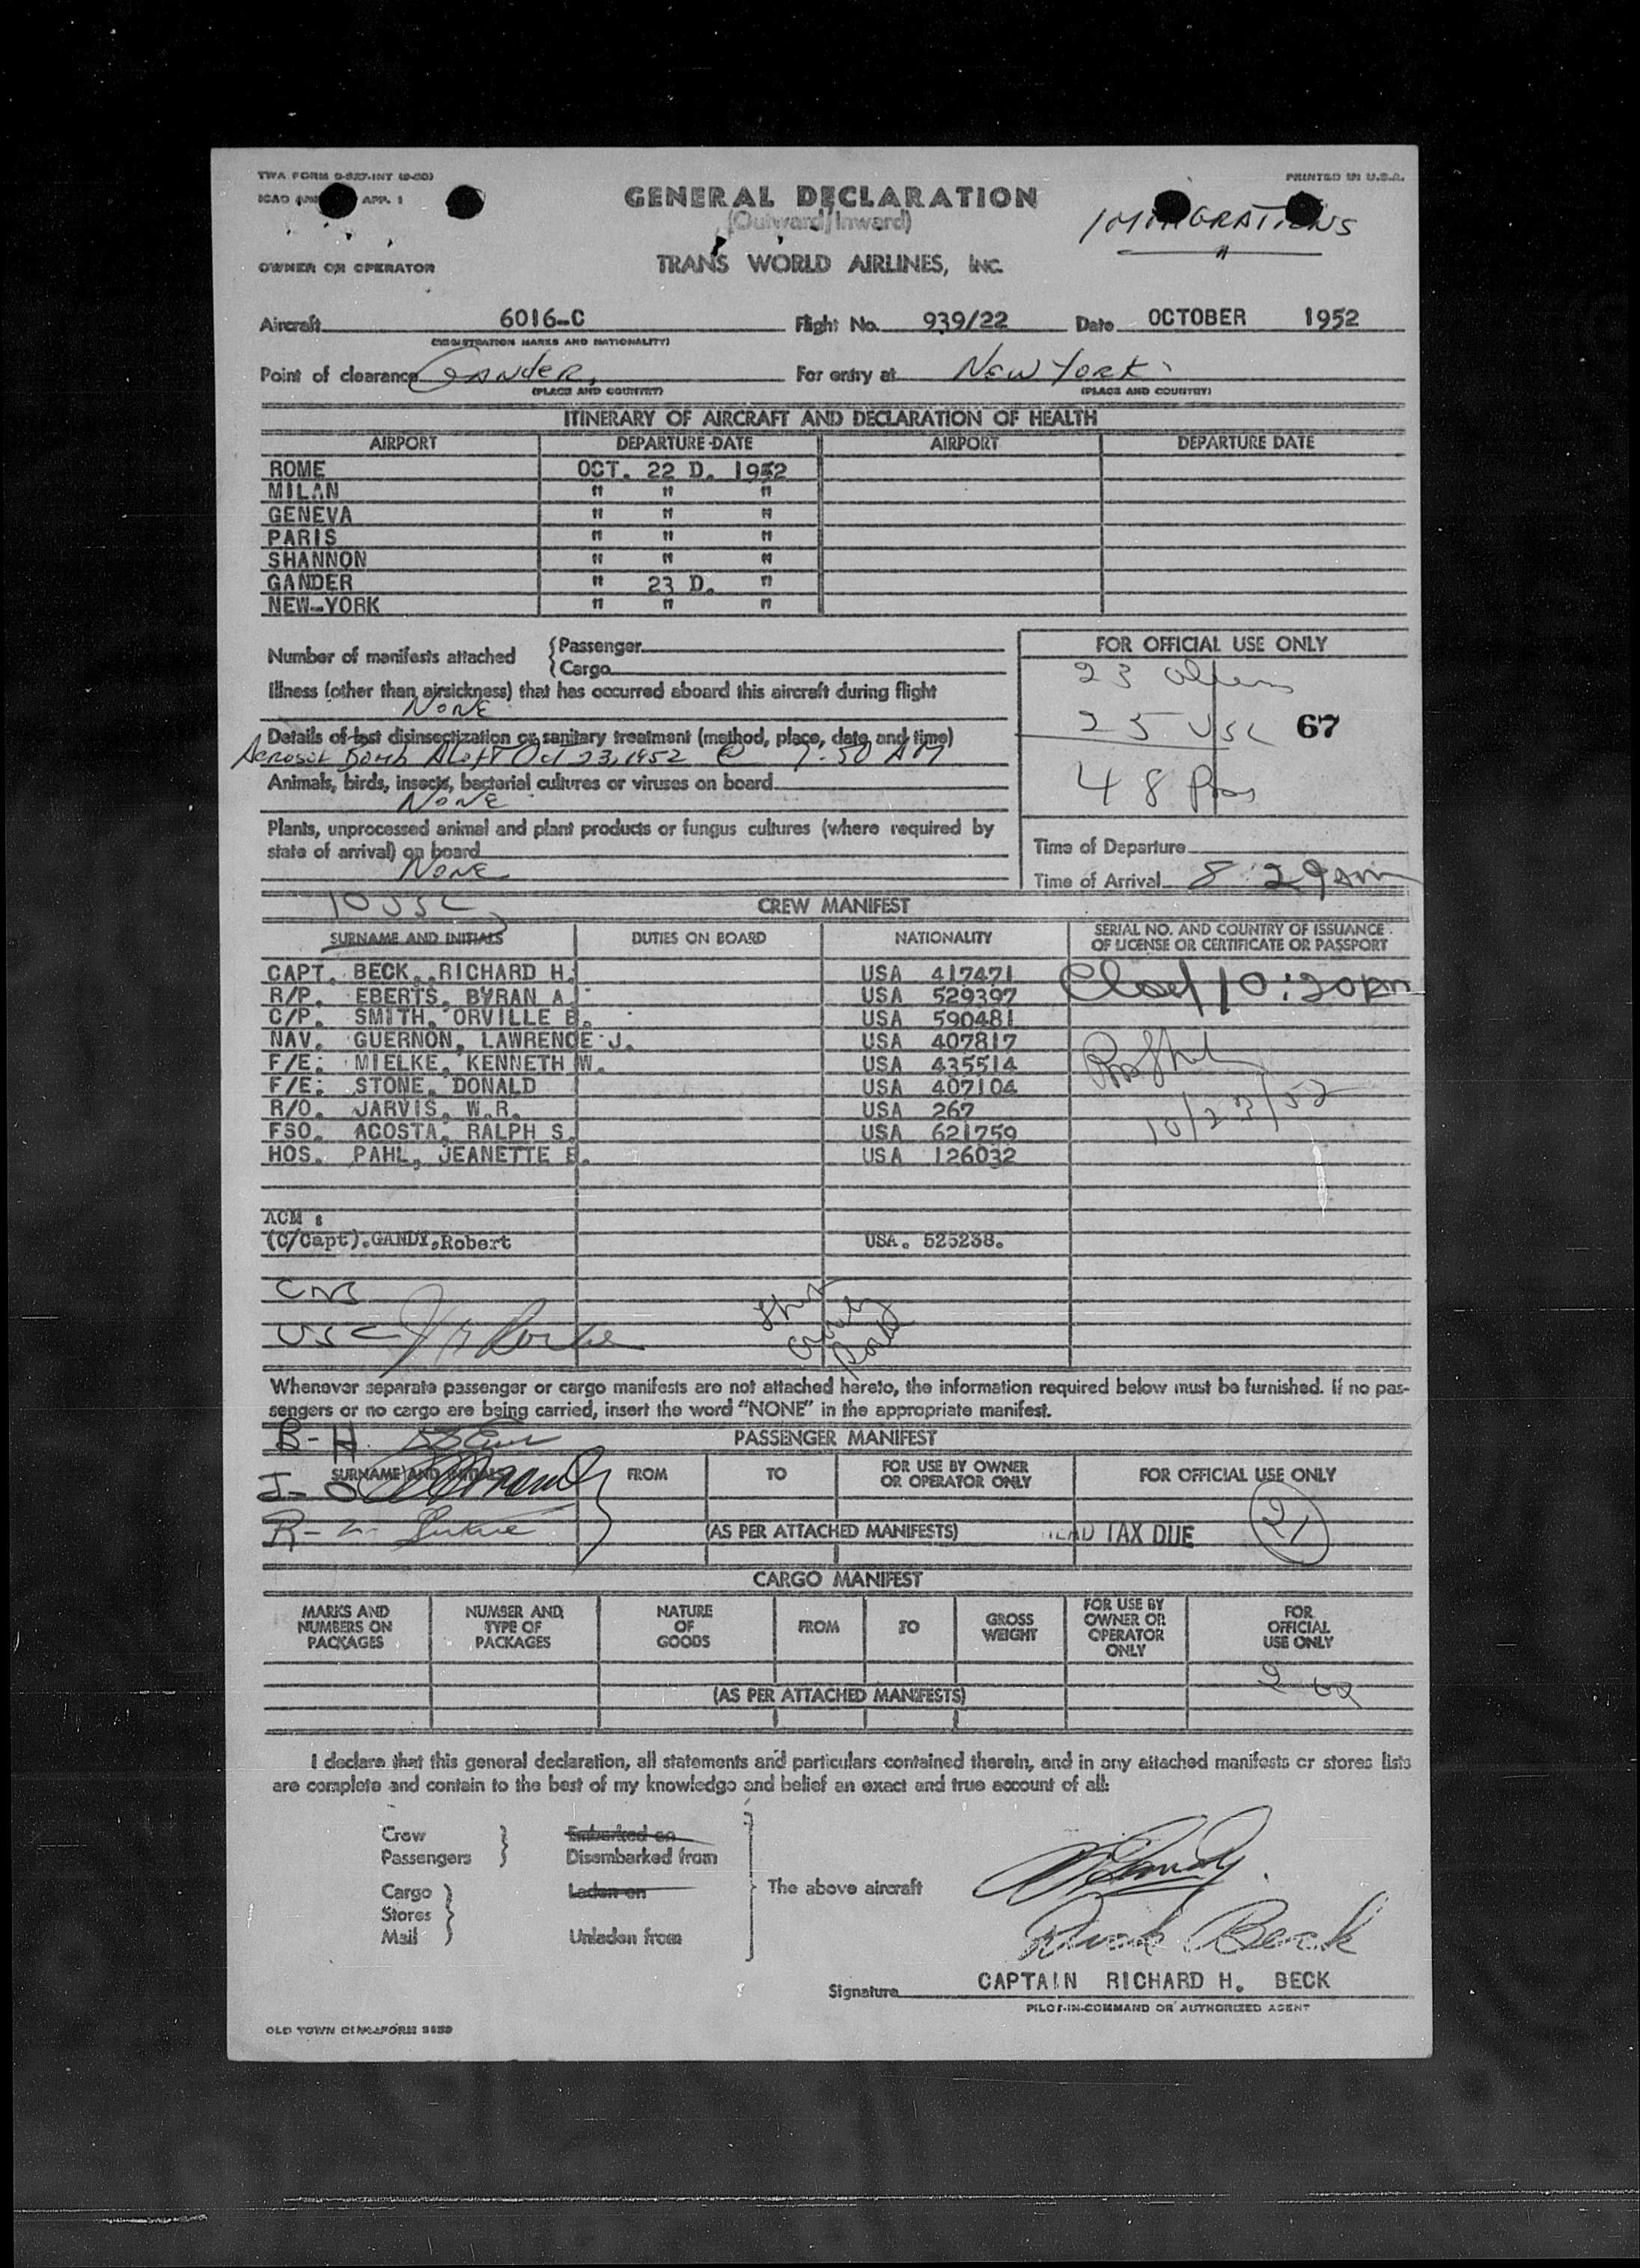 TWA FORM O-527-INT
PRINTED IN U.S.A.
ICAO APP. 1
GENERAL DECLARATION
(Outward/Inward)
IMMIGRATIONS
OWNER OR OPERATOR
TRANS WORLD AIRLINES, INC.
Aircraft 6016-C Flight No. 939/22 Date OCTOBER 1952
(REGISTRATION MARKS AND NATIONALITY)
Point of clearance GANDER, For entry at NEW YORK
(PLACE AND COUNTRY) (PLACE AND COUNTRY)
ITINERARY OF AIRCRAFT AND DECLARATION OF HEALTH
AIRPORT DEPARTURE DATE AIRPORT DEPARTURE DATE
ROME OCT. 22 D. 1952
MILAN " " "
GENEVA " " "
PARIS " " "
SHANNON " " "
GANDER " 23 D. "
NEW-YORK " " "
Number of manifests attached { Passenger
{ Cargo
FOR OFFICIAL USE ONLY
23 aliens
25 USC 67
48 Pas
Illness (other than airsickness) that has occurred aboard this aircraft during flight
NONE
Details of last disinsectization or sanitary treatment (method, place, date and time)
Aerosol Bomb Aloft Oct 23, 1952 @ 7:50 AM
Animals, birds, insects, bacterial cultures or viruses on board
NONE
Plants, unprocessed animal and plant products or fungus cultures (where required by
state of arrival) on board
NONE
Time of Departure
Time of Arrival 8:29am
10 USC
CREW MANIFEST
SURNAME AND INITIALS DUTIES ON BOARD NATIONALITY SERIAL NO. AND COUNTRY OF ISSUANCE
OF LICENSE OR CERTIFICATE OR PASSPORT
CAPT. BECK, RICHARD H. USA 417471
Closed 10:20pm
R/P. EBERTS, BYRAN A. USA 529397
C/P. SMITH, ORVILLE B. USA 590481
NAV. GUERNON, LAWRENCE J. USA 407817
F/E: MIELKE, KENNETH W. USA 435514
F/E: STONE, DONALD USA 407104
R/O. JARVIS, W.R. USA 267
10/23/52
FSO. ACOSTA, RALPH S. USA 621759
HOS. PAHL, JEANETTE E. USA 126032
ACM :
(C/Capt).GANDY,Robert USA. 525238.
USC
Whenever separate passenger or cargo manifests are not attached hereto, the information required below must be furnished. If no pas-
sengers or no cargo are being carried, insert the word "NONE" in the appropriate manifest.
B-H
PASSENGER MANIFEST
SURNAME AND INITIALS FROM TO FOR USE BY OWNER
OR OPERATOR ONLY FOR OFFICIAL USE ONLY
(AS PER ATTACHED MANIFESTS) HEAD TAX DUE 21
CARGO MANIFEST
MARKS AND
NUMBERS ON
PACKAGES
NUMBER AND
TYPE OF
PACKAGES
NATURE
OF
GOODS
FROM
TO
GROSS
WEIGHT
FOR USE BY
OWNER OR
OPERATOR
ONLY
FOR
OFFICIAL
USE ONLY
(AS PER ATTACHED MANIFESTS)
I declare that this general declaration, all statements and particulars contained therein, and in any attached manifests or stores lists
are complete and contain to the best of my knowledge and belief an exact and true account of all:
Crew Embarked on
Passengers Disembarked from
Cargo Laden on The above aircraft
Stores
Mail Unladen from
Beck
Signature CAPTAIN RICHARD H. BECK
PILOT-IN-COMMAND OR AUTHORIZED AGENT
OLD TOWN